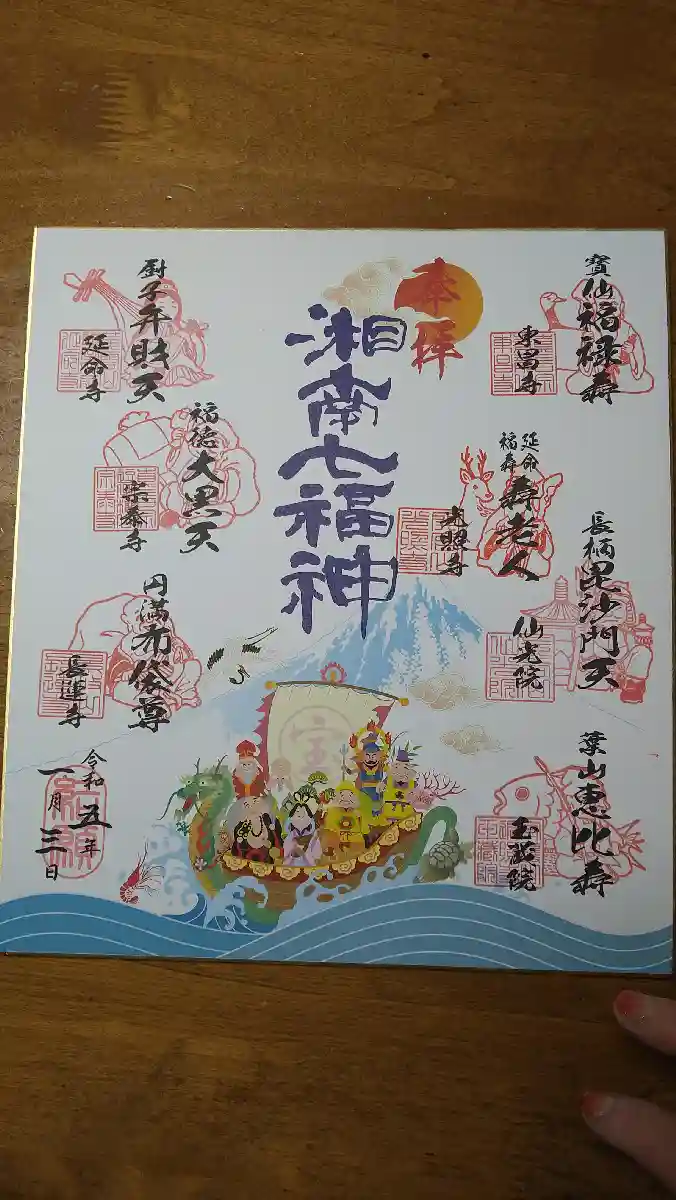 奉拝
湘南七福神
寳仙福禄壽
東昌寺
延命
福寿
壽老人
光照寺
長柄毘沙門天
仙光院
葉山恵比寿
玉蔵院
厨子弁財天
延命寺
福徳大黒天
宗泰寺
円満布袋尊
長運寺
宝
令和五年
一月三日